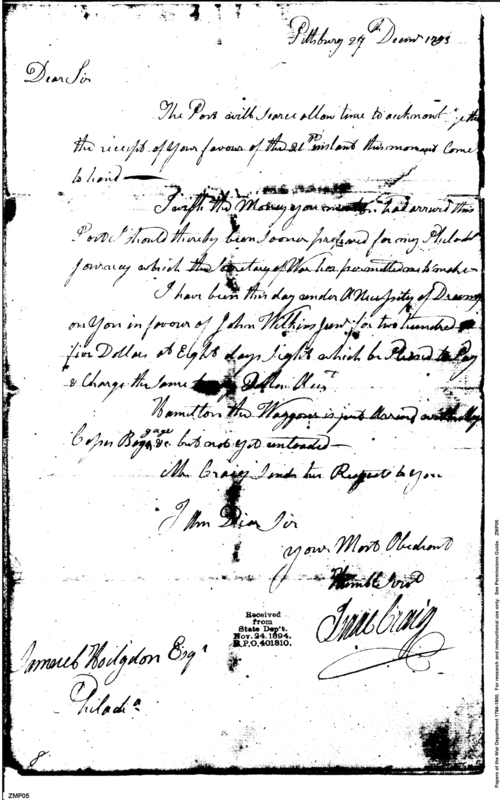 Pittsburg 27th Decemr 1793
Dear Sir
The Post will scarce allow time to acknowledge
the receipt of your favour of the 21st instant this moment come
to hand —
I wish the Money you mention had arrived this
Post I should thereby been sooner prepared for my Philada
Journey which the Secretary of War has permitted me to make —
I have been this day under a Necessity of Drawing
on You in favour of John Wilkins Junr for two hundred
five Dollars at Eight days sight which be Pleased to Pay
& Charge the same to
Hamilton the Waggoner is just Arrived with
Baggage &c but not yet unloaded —
Mrs Craig sends her Respects to you
I Am Dear Sir
your Most Obedient
Humble Servt
Isaac Craig
Samuel Hodgdon Esqr
Philada
8
Received
from
State Dep't.
Nov. 24. 1894.
R.P.O. 401810.
ZMP05
Papers of the War Department 1784-1800. For research and institutional use only. See Permissions Guide. ZMP05